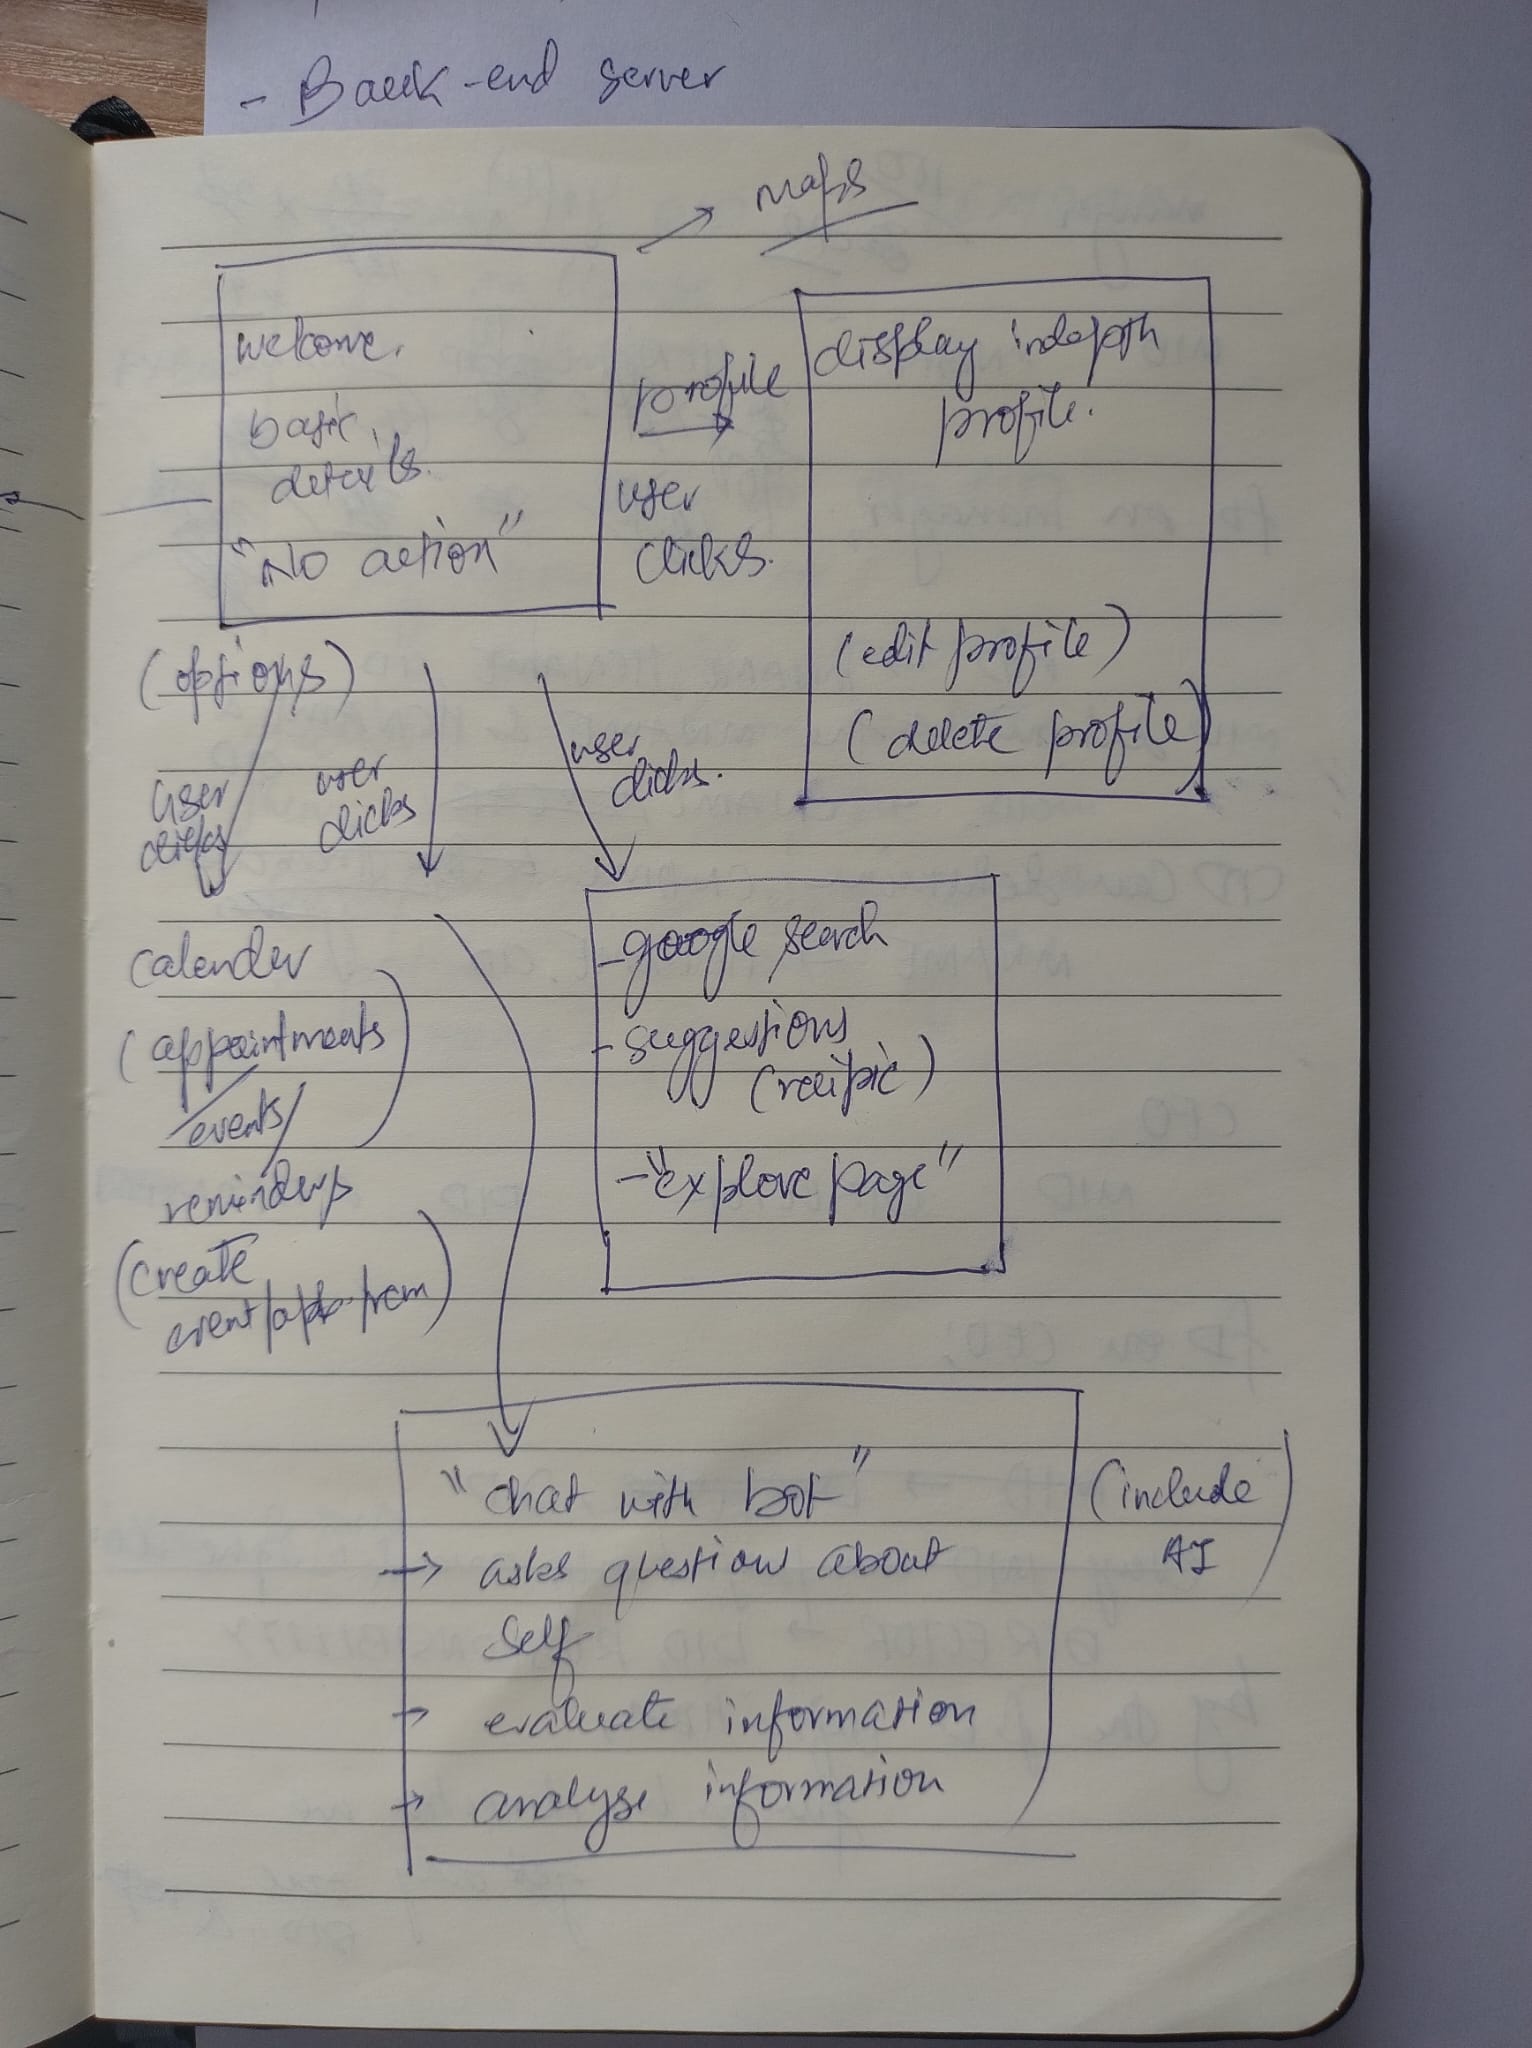 - Back-end server
→ maps
welcome.
basic
details.
"No action"
profile
user
clicks.
display indepth
profile.
(edit profile)
(delete profile)
(options)
user
clicks
user
clicks
user
clicks.
calender
(appointments
/events/
reminders
(create
event/app./rem)
- google search
- suggestions
(recipie)
- "explore page"
"chat with bot"
→ asks question about
self
→ evaluate information
→ analyse information
(include
AI)